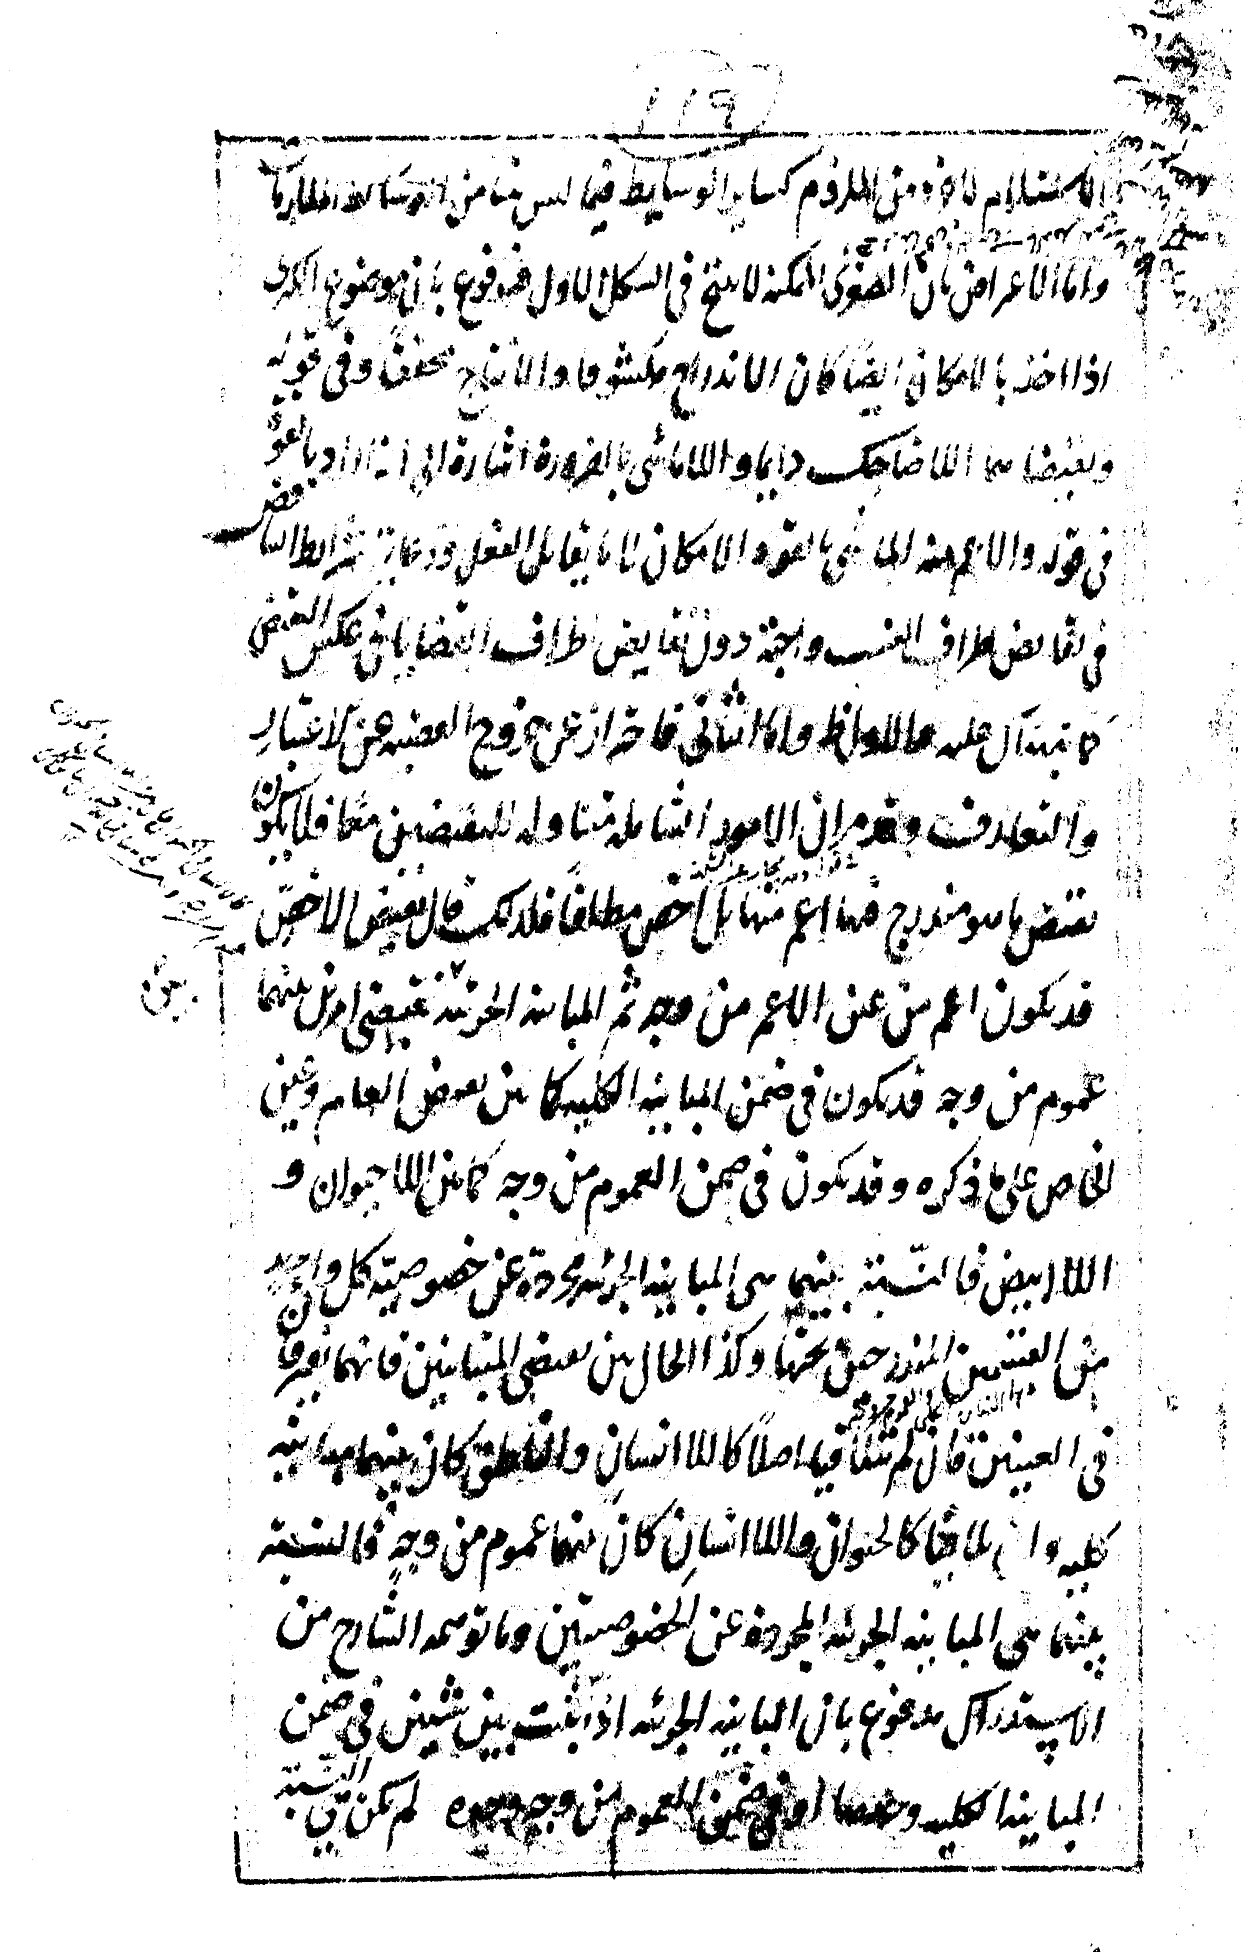 ١١٩
الاستلزام لازم من الملزوم كساير الوسايط فيما ليس شيئا من
واما الاعراض بان الصغرى الممكنة لا ينتج في الشكل الاول فمدفوع بان موضوع الكبرى
اذا اخذ بالامكان ايضا كان الاندراج مكشوفا والانتاج محققا وفي قوله
ونقيضاهما اللاضاحك دايما واللاماشي بالضرورة اشارة الى انه اراد بالقوة
في قوله والاعم منه الماشي بالقوة الامكان لا ما يقابل الفعل ورعاية شرايط التناقض
في نقايض اطراف النسب واجبة دون نقايض اطراف القضايا في عكس النقيض
كما نبهناك عليه هنالك واما الثاني فاحتراز عن خروج القضية عن الاعتبار
والتعارف وقد مر ان الامور الشاملة متناولة للنقيضين معا فلا يكون
نقيض ما هو مندرج فيها اعم منها بل اخص مطلقا فلذلك قال نقيض الاخص
قد يكون اعم من عين الاعم من وجه ثم المباينة الجزئية بين نقيضي امرين بينهما
عموم من وجه قد يكون في ضمن المباينة الكلية كما بين نقيض العام وعين
الخاص على ما ذكره وقد يكون في ضمن العموم من وجه كما بين اللاحيوان و
اللاابيض فالنسبة بينهما هي المباينة الجزئية مجردة عن خصوصية كل واحد
من القسمين المندرجين تحتها وكذا الحال بين نقيضي المتباينين فانهما يفترقان
في العينين فان لم يتلاقيا اصلا كاللاانسان والناطق كان بينهما مباينة
كلية وان تلاقيا كالحيوان واللاانسان كان بينهما عموم من وجه فالنسبة
بينهما هي المباينة الجزئية المجردة عن الخصوصيتين وما توهمه الشارح من
الاستدراك مدفوع بان المباينة الجزئية اذا ثبتت بين شيئين في ضمن
المباينة الكلية وحدها او في ضمن العموم من وجه وحده لم يكن هي النسبة